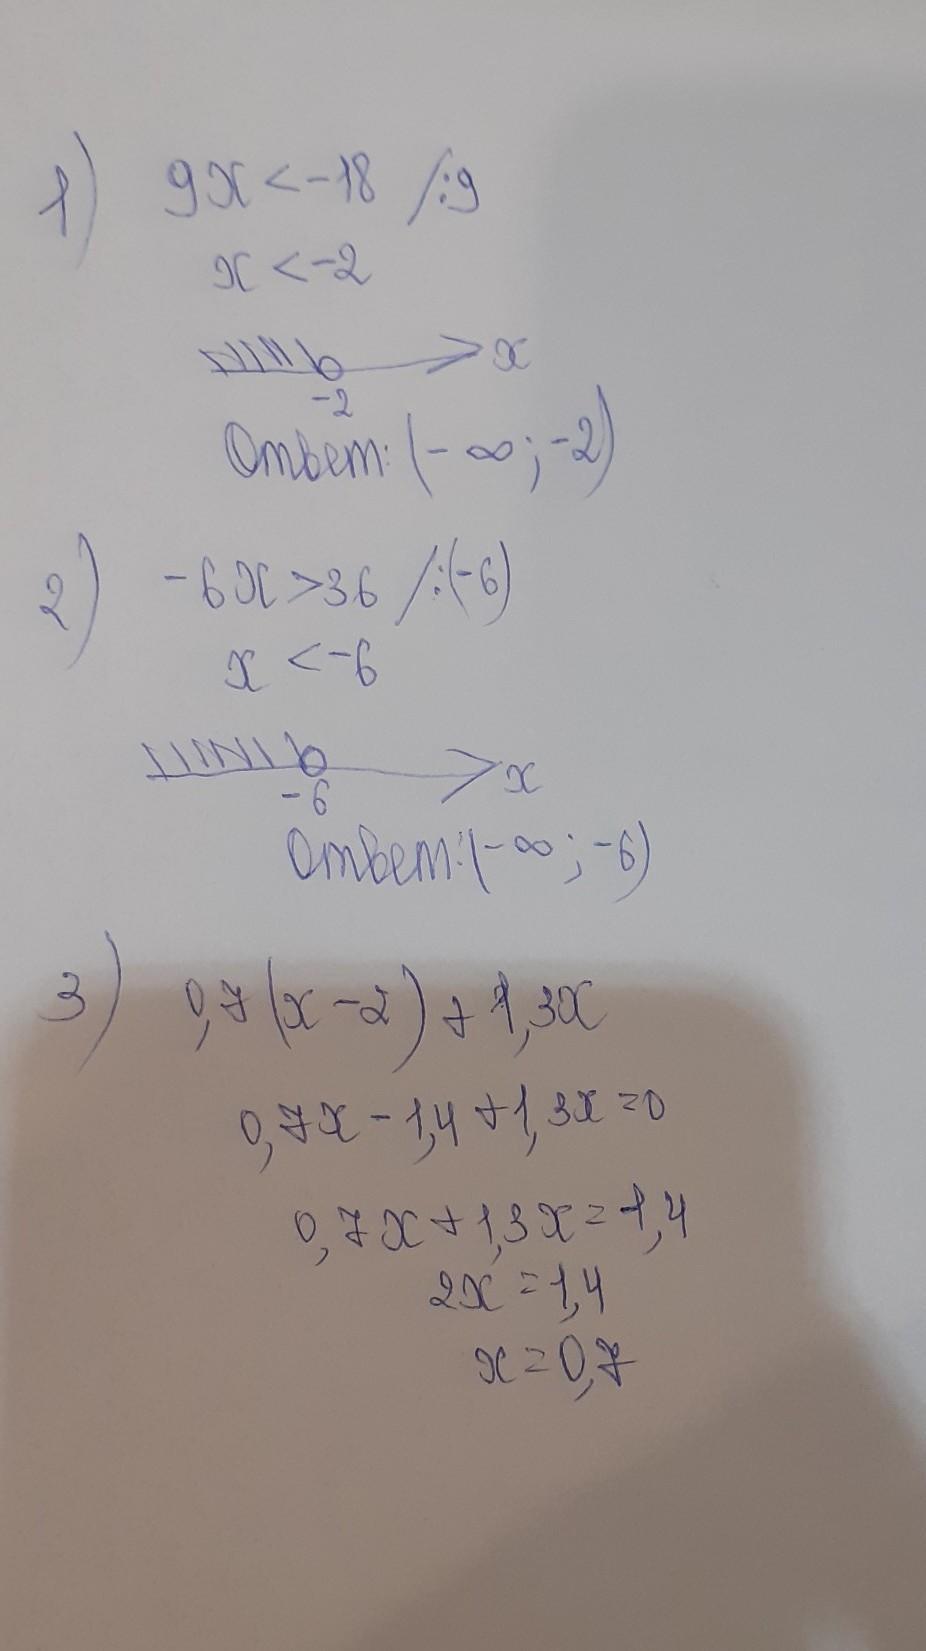 1) 9x < -18 /:9
x < -2
x
-2
Ответ: (-∞; -2)
2) -6x > 36 /:(-6)
x < -6
x
-6
Ответ: (-∞; -6)
3) 0,7(x-2) + 1,3x
0,7x - 1,4 + 1,3x = 0
0,7x + 1,3x = 1,4
2x = 1,4
x = 0,7